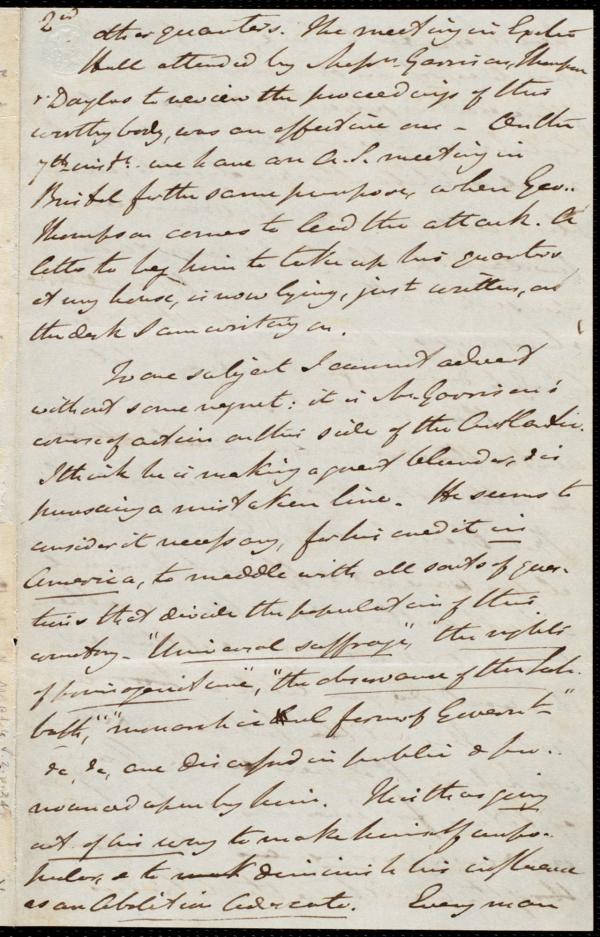 2nd
other quarters. The meeting in Exeter
Hall attended by Messrs. Garrison, Thompson
& Douglas to review the proceedings of this
worthy body, was an effective one - On the
7th inst. we have an A. S. meeting in
Bristol for the same purpose, when Geo.
Thompson comes to lead the attack. A
letter to beg him to take up his quarters
at my house, is now lying, just written, on
the desk I am writing on.
To one subject I cannot advert
without some regret: it is Mr Garrison's
course of action on this side of the Atlantic.
I think he is making a great blunder, & is
pursuing a mistaken line. He seems to
consider it necessary, for his credit in
America, to meddle with all sorts of ques-
tions that divide the population of this
country - "Universal suffrage", "the rights
of primogeniture", "the observance of the Sab-
bath," "monarchical form of Governt"
&c, &c, are discussed in public & pro-
nounced upon by him. This is going
out of his way to make himself unpo-
pular, & to diminish his influence
as an Abolition Advocate. Every man